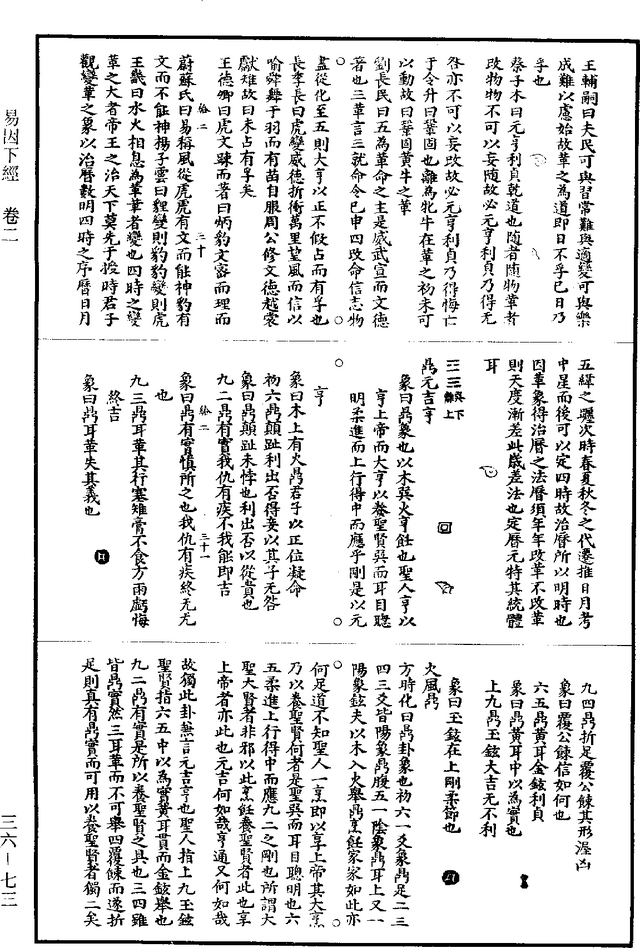 易因下經 卷二
三六－七三
王輔嗣曰夫民可與習常難與適變可與樂
成難以慮始故革之為道即日不孚已日乃
孚也
蔡子木曰元亨利貞乾道也隨者隨物革者
改物物不可以妄隨故必元亨利貞乃得无
咎亦不可以妄改故必元亨利貞乃得悔亡
于令升曰鞏固也離為牝牛在革之初未可
以動故曰鞏固黃牛之革
劉長民曰五為革命之主是威武宣而文德
著也三革言三就命令已申四改命信志物
盡從化至五則大亨以正不假占而有孚也
長李長曰虎變威德折衝萬里望風而信以
喻舜舞干羽而有苗自服周公修文德越裳
獻雉故曰未占有孚矣
王德卿曰虎文疎而著曰炳豹文密而理而
蔚蘇氏曰易稱風從虎虎有文而能神豹有
文而不能神揚子雲曰貍變則豹豹變則虎
王畿曰水火相息為革革者變也四時之變
革之大者帝王之治天下莫先于授時君子
觀變革之象以治曆數明四時之序曆日月
五緯之躔次時春夏秋冬之代遷推日月考
中星而後可以定四時故治曆所以明時也
因革象得治曆之法曆須年年改革不改革
則天度漸差此歲差法也定曆元特其統體
耳
☲☴ 巽下離上
鼎元吉亨
彖曰鼎象也以木巽火亨飪也聖人亨以
亨上帝而大亨以養聖賢巽而耳目聰
明柔進而上行得中而應乎剛是以元
亨
象曰木上有火鼎君子以正位凝命
初六鼎顛趾利出否得妾以其子无咎
象曰鼎顛趾未悖也利出否以從貴也
九二鼎有實我仇有疾不我能即吉
象曰鼎有實慎所之也我仇有疾終无尤
也
九三鼎耳革其行塞雉膏不食方雨虧悔
終吉
象曰鼎耳革失其義也
九四鼎折足覆公餗其形渥凶
象曰覆公餗信如何也
六五鼎黃耳金鉉利貞
象曰鼎黃耳中以為實也
上九鼎玉鉉大吉无不利
象曰玉鉉在上剛柔節也
火風鼎
方時化曰鼎卦象也初六一爻象鼎足二三
四三爻皆陽象鼎腹五一陰象鼎耳上又一
陽象鉉夫以木入火舉鼎烹飪家家如此亦
何足道不知聖人一烹即以享上帝其大烹
乃以養聖賢何者是聖巽而耳目聰明也六
五柔進上行得中而應九二之剛也所謂大
聖大賢者非邪以此烹飪養聖賢者此也享
上帝者亦此也元吉何如哉亨通又何如哉
故獨此卦無言元吉亨也聖人指上九玉鉉
聖賢指六五中以為實黃耳貫而金鉉舉也
九二鼎有實是所以養聖賢之具也三四雖
皆鼎實然三耳革而不可舉四覆餗而遂折
足則真有鼎實而可用以養聖賢者獨二矣